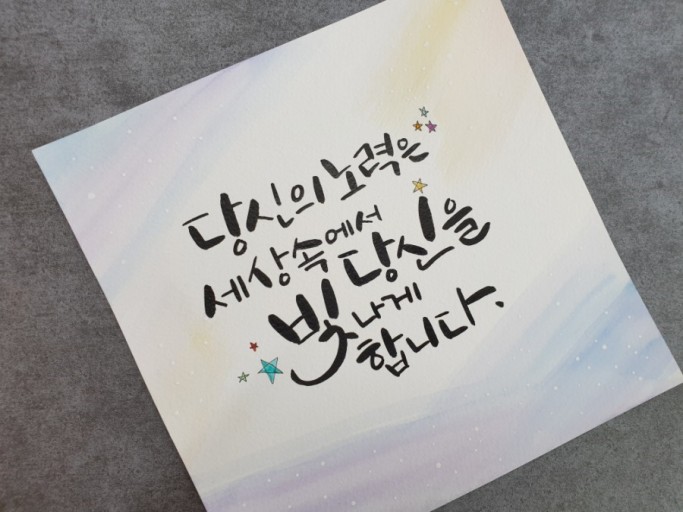 당신의 노력은
세상속에서 당신을
빛나게
합니다.